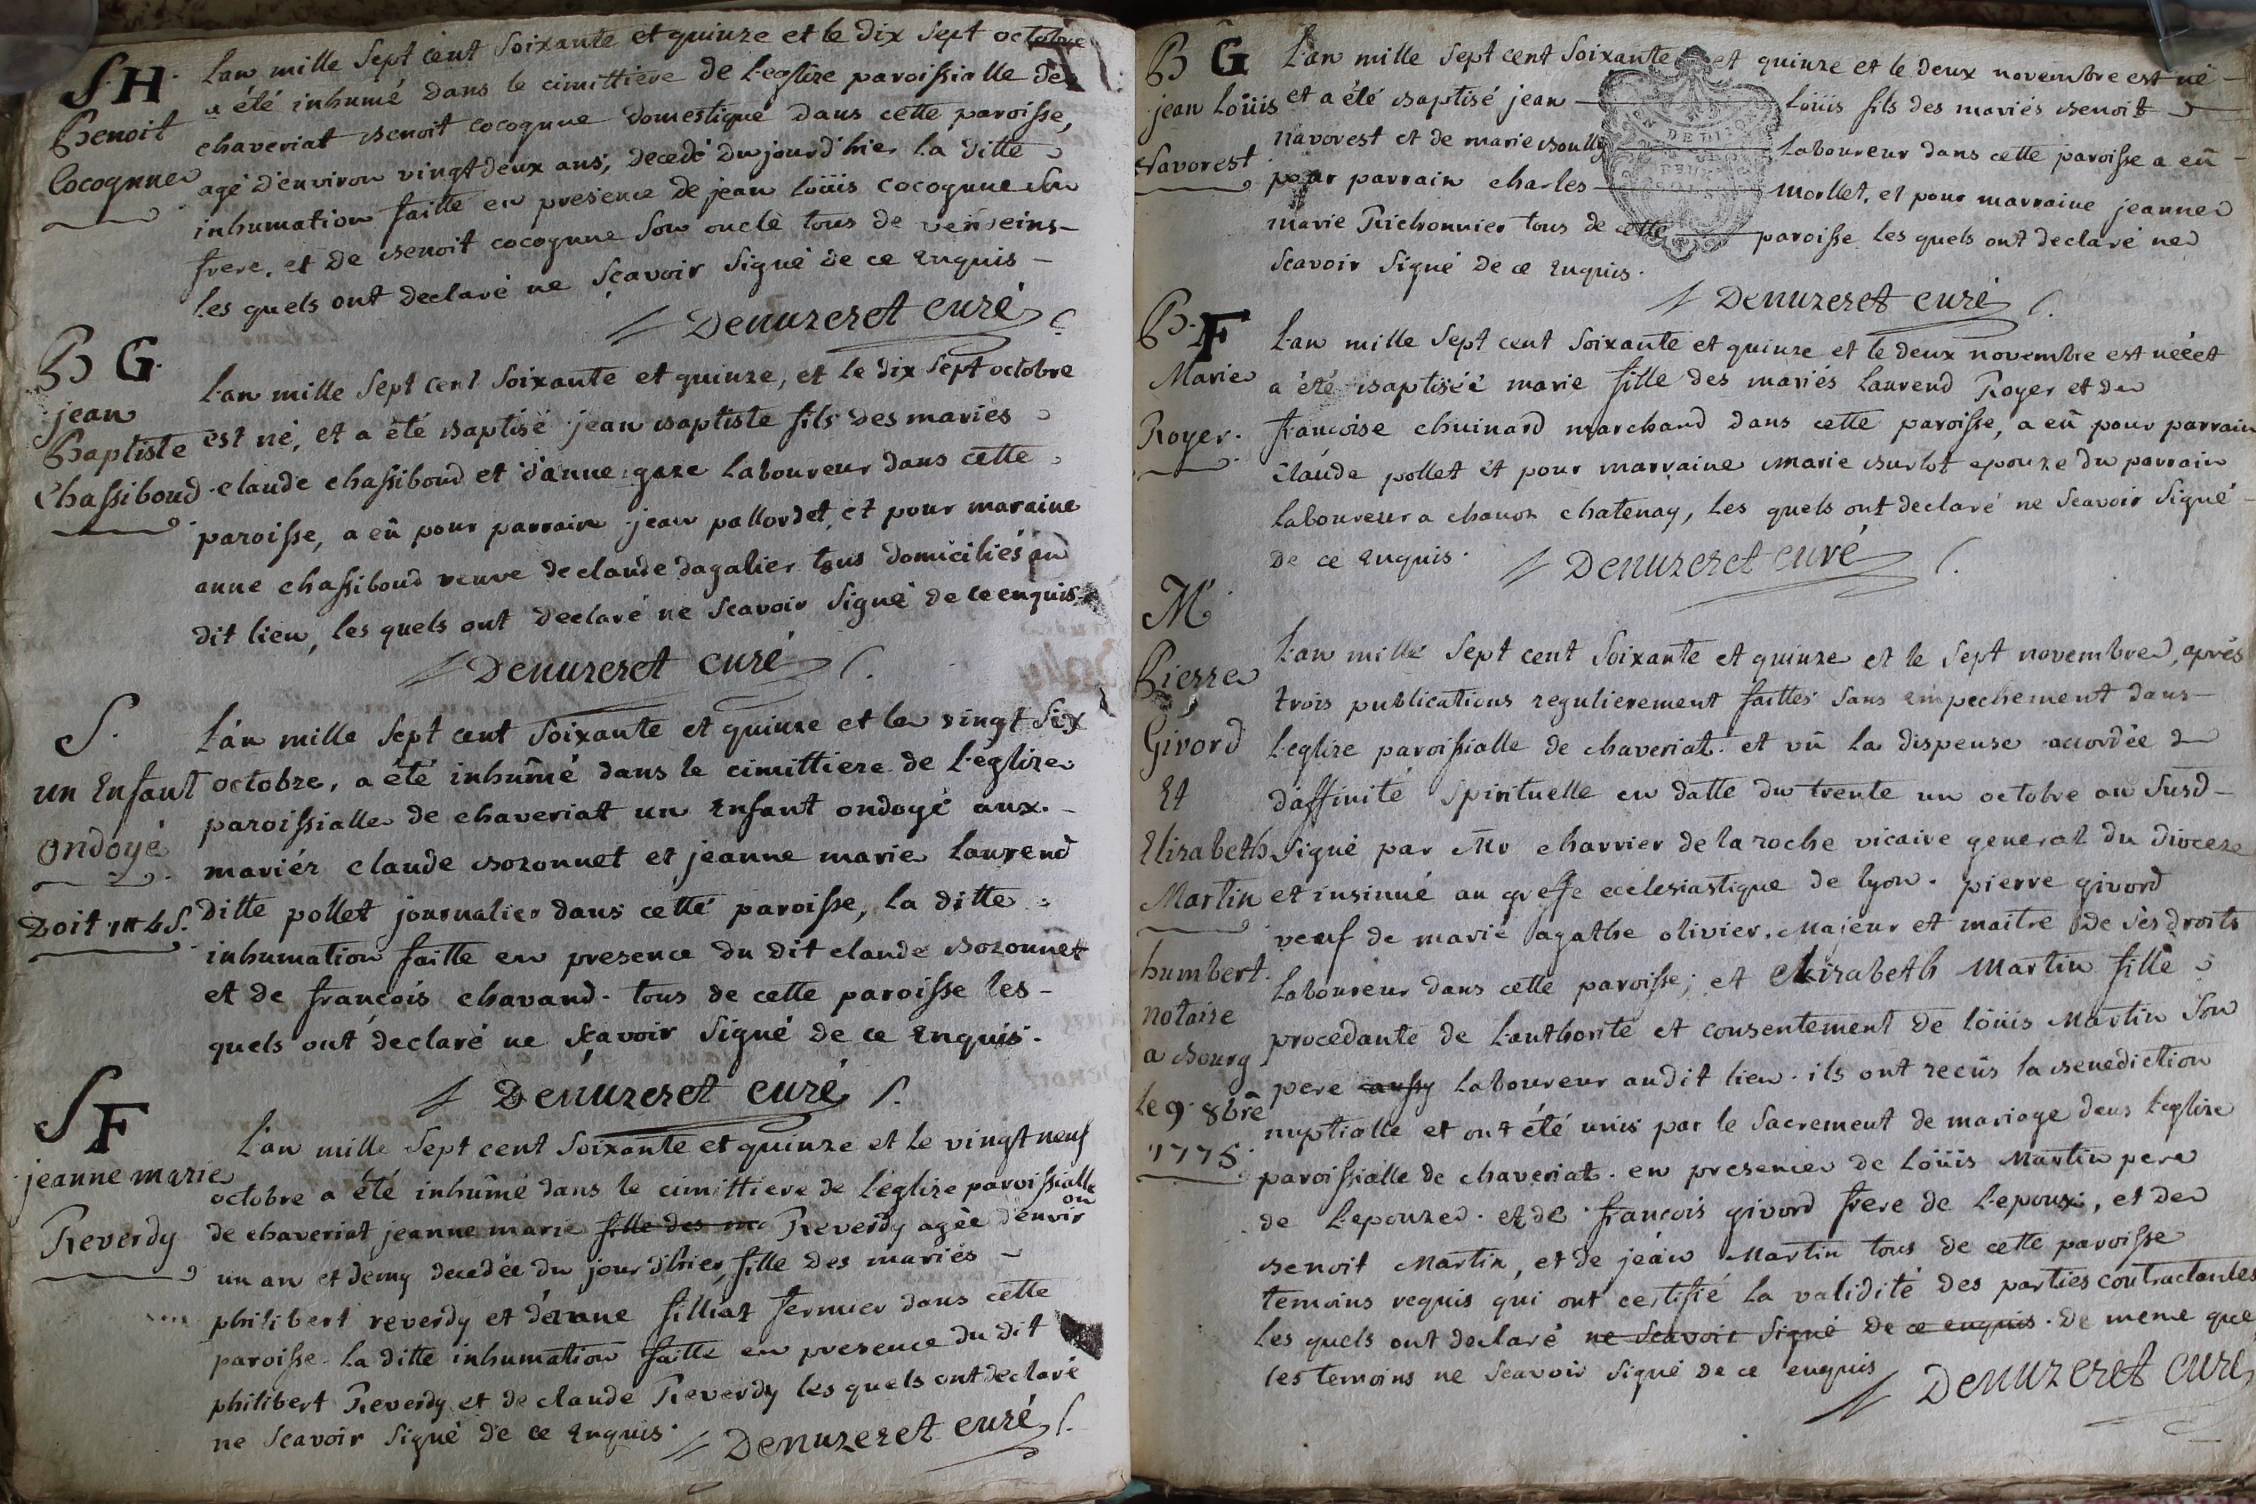 S. H.
Benoit
Cocognne
L'an mille sept cent soixante et quinze et le dix sept octobre
a été inhumé dans le cimittiere de l'eglize paroissialle de
chaveriat Benoit cocognne domestique dans cette paroisse,
agé d'environ vingt deux ans, decedé du jour d'hier la ditte
inhumation faitte en presence de jean loüis cocognne son
frere. et de Benoit cocognne son oncle tous de
les quels ont declaré ne sçavoir signé de ce enquis
Denuzeret curé
B G.
jean
Baptiste
Chassiboud
L'an mille sept cent soixante et quinze, et le dix sept octobre
est né, et a été baptisé jean baptiste fils des mariés
claude chassiboud et d'anne gaze laboureur dans cette
paroisse, a eû pour parrain jean pallordet, et pour maraine
anne chassiboud veuve de claude dagalier tous domiciliés au
dit lieu, les quels ont declaré ne scavoir signé de ce enquis
Denuzeret curé
S.
un Enfant
ondoyé
Doit 1tt 4s.
L'an mille sept cent soixante et quinze et le vingt six
octobre, a été inhûmé dans le cimittiere de l'églize
paroissialle de chaveriat un Enfant ondoyé aux
mariéz claude bozonnet et jeanne marie laurend
ditte pollet journalier dans cette paroisse, la ditte
inhumation faitte en presence du dit claude bozonnet
et de françois chavand. tous de cette paroisse les
quels ont declaré ne sçavoir signé de ce enquis.
Denuzeret curé
S F
jeanne marie
Reverdy
L'an mille sept cent soixante et quinze et le vingt neuf
octobre a été inhûmé dans le cimittiere de l'églize paroissialle
de chaveriat jeanne marie fille des ma Reverdy agée d'environ
un an et demy decedée du jour d'hier, fille des mariés
philibert reverdy et d'anne filliat fermier dans cette
paroisse. la ditte inhumation faitte en presence du dit
philibert Reverdy et de claude Reverdy les quels ont declaré
ne scavoir signé de ce enquis.
Denuzeret curé
B G
jean Loüis
Navorest
L'an mille sept cent soixante et quinze et le deux novembre est né
et a été baptisé jean loüis fils des mariés benoit
navorest et de marie boully laboureur dans cette paroisse a eû
pour parrain charles mollet, et pour marraine jeanne
marie Richonnier tous de cette paroisse les quels ont declaré ne
scavoir signé de ce enquis.
Denuzeret curé
B. F
Marie
Royer.
L'an mille sept cent soixante et quinze et le deux novembre est néé et
a été baptiséé marie fille des mariés laurend Royer et de
francoise chuinard marchand dans cette paroisse, a eû pour parrain
Claude pollet et pour marraine marie burlot epouze du parrain
laboureur a chanoz chatenay, les quels ont declaré ne scavoir signé
de ce enquis.
Denuzeret curé
M
Pierre
Givord
Et
Elizabeth
Martin
humbert
notaire
a bourg
le 9. 8bre
1775.
L'an mille sept cent soixante et quinze et le sept novembre, aprés
trois publications regulierement faittes sans empechement dans
l'eglize paroissialle de chaveriat. et vû la dispense accordée
d'affinité spirituelle en datte du trente un octobre an susd
signé par Mr charrier de la roche vicaire general du dioceze
et insinué au greffe ecclesiastique de lyon. pierre givord
veuf de marie agathe olivier. majeur et maitre de ses droits
laboureur dans cette paroisse; et Elizabeth Martin fille
procedante de l'authorité et consentement de loüis Martin son
pere aussy laboureur audit lieu. ils ont recûs la benediction
nuptialle et ont été unis par le sacrement de mariage dans l'eglize
paroissialle de chaveriat. en presence de loüis Martin pere
de l'epouze. et de françois givord frere de l'epoux, et de
benoit Martin, et de jean Martin tous de cette paroisse
temoins requis qui ont certifié la validité des parties contractantes
les quels ont declaré ne scavoir signé de ce enquis. De meme que
les temoins ne scavoir signé de ce enquis
Denuzeret curé